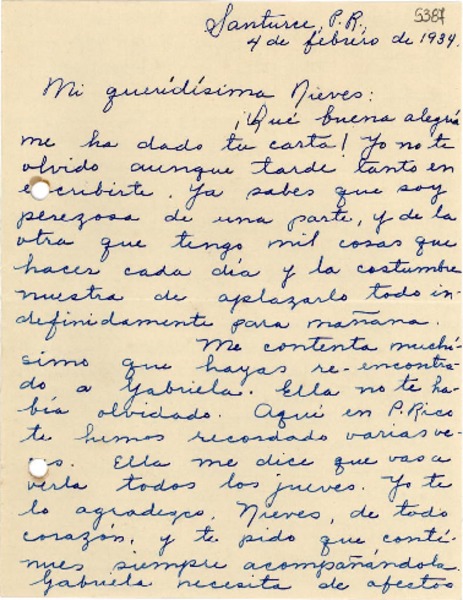 5387
Santurce, P.R.,
4 de febrero de 1934.
Mi queridísima Nieves:
¡Qué buena alegría
me ha dado tu carta! Yo no te
olvido aunque tarde tanto en
escribirte. Ya sabes que soy
perezosa de una parte, y de la
otra que tengo mil cosas que
hacer cada día y la costumbre
nuestra de aplazarlo todo in-
definidamente para mañana.
Me contenta muchí-
simo que hayas re-encontra-
do a Gabriela. Ella no te ha-
bía olvidado. Aquí en P. Rico
te hemos recordado varias ve-
es. Ella me dice que vas a
verla todos los jueves. Yo te
lo agradezco, Nieves, de todo
corazón, y te pido que conti-
núes siempre acompañándola.
Gabriela necesita de afectos